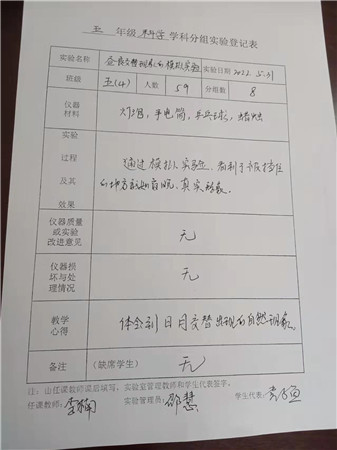 五 年级 科学 学科分组实验登记表
实验名称 昼夜交替现象的模拟实验 实验日期 2022.5.31
班级 五(4) 人数 59 分组数 8
仪器
材料 灯泡,手电筒,乒乓球,蜡烛
实验
过程 通过模拟实验
及其 的地方就如白昼、真实现象。
效果
仪器质量
或实验 无
改进意见
仪器损
坏与处 无
理情况
教学 体会到日月交替出现的自然现象。
心得
备注 (缺席学生) 无
注:由任课教师课后填写,实验室管理教师和学生代表签字。
任课教师: 实验管理员:邵慧 学生代表: